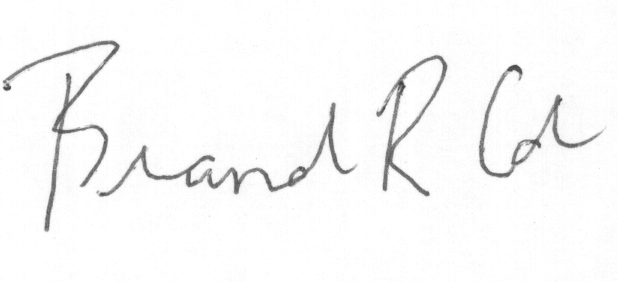 Brand R Col